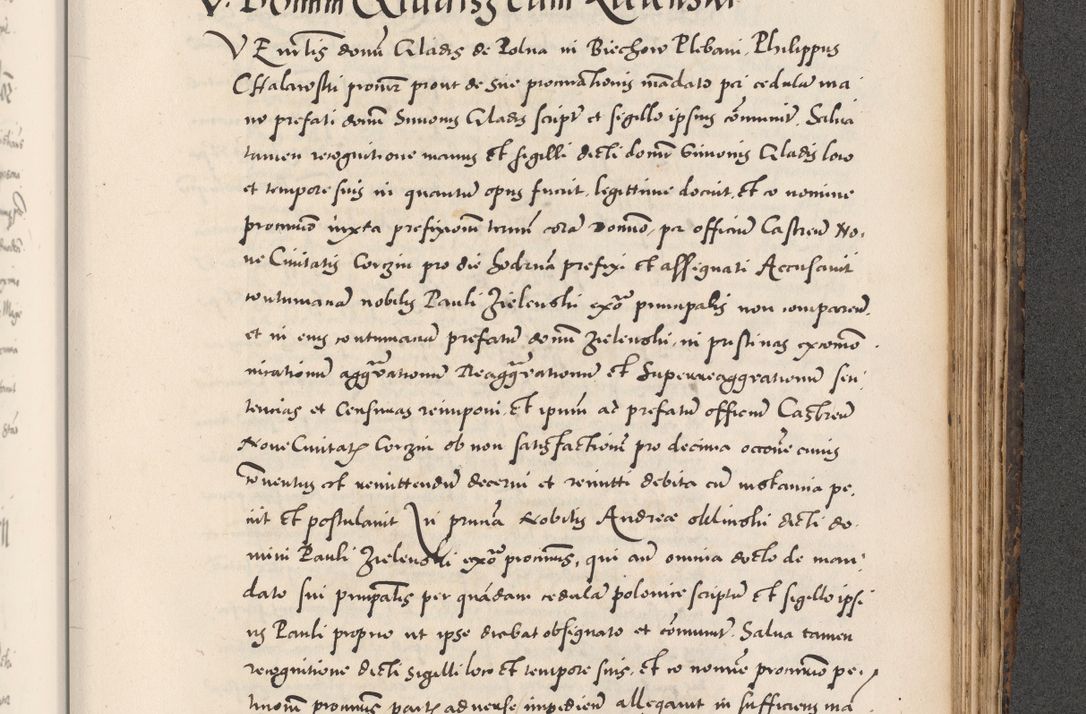 V. Domini Gladisz cum Zielenski
VEnerlis domi Gladis de Rolna in Biechow Plebani, Philippus
Chalawski procur prout de sue procurationis mandato per cedulam ma
nu prefati domi Simonis Gladis script et sigillo ipsius communit. Salva
tamen recognitione manus Et sigilli dicti domi Simonis Gladis loco
et tempore suis in quantum opus fuerit, legittime docuit, Et eo nomine
procurio iuxta prefixionem termi coram Domino, per officium Castren No,
ve Civitatis Corczin pro die hodierna prefixi Et assignati Accusavit
contumaciam nobilis Pauli Zielenski principalis non comparen,
et in eius contumaciam prefatum domi Zielenski, in pristinas excomo
nicationum aggravationum Reaggravationum Et Superreaggravationum sen
tencias et Censuras reimponi, Et ipsum ad prefatum officium Castren
Nove Civitatis Corczin ob non satisfactionem pro decima
conventus et remittendum decerni et remitti debita cum instantia pe,
tiit Et postulavit In presencia Nobilis Andree dicti do,
mini Pauli Zielenski procuris, qui omnia docto de man,
dato sui principalis per quandam cedulam polonice scriptam Et sigillo ipsi
us Pauli proprio ut ipse dicebat obsignato et communit. Salva tamen
recognitione dicti sigilli loco Et tempore suis, Et eo nomine procurio pe,
procuris partis adverse impedien allegavit in sufficiens ma